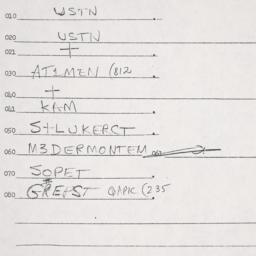 010 USTN
020 USTN
021 +
030 AT1MEN (812
040 +
041 KAM
050 S+LUKERCT
060 M3DERMONTEM
070 SOPET
080 GREFST QAPIC (235